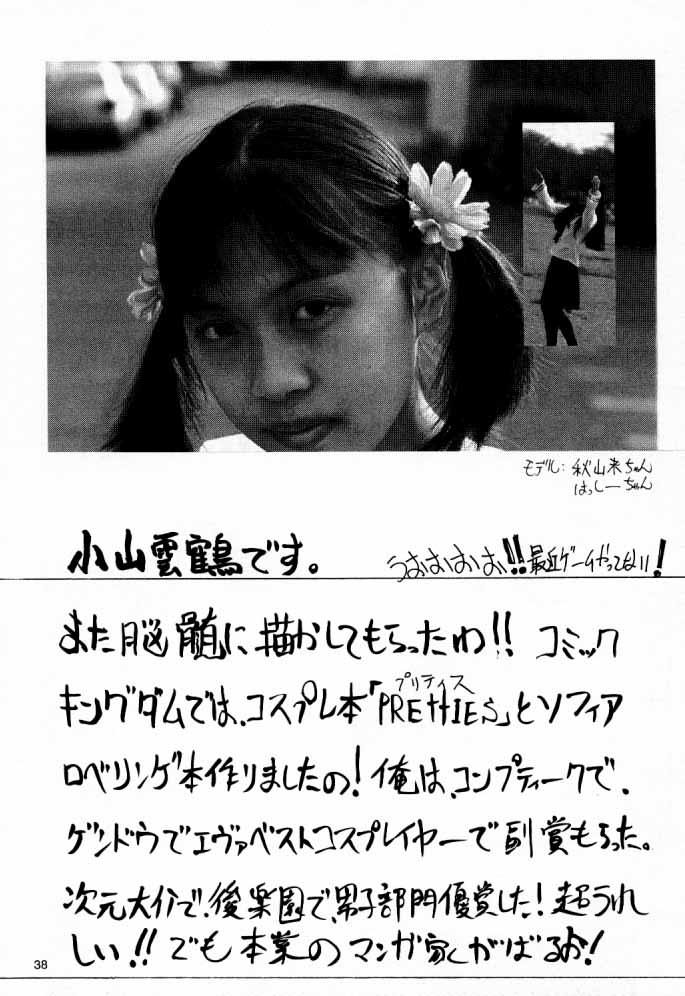 モデル: 秋山来ちゃん
はっしーちゃん
小山雲鶴です。
うおおいおいおい!!最近ゲームやってないい!
また脳髄に描かしてもらったわ!! コミック
キングダムでは、コスプレ本「PRETTIES」とソフィア
プリティス
ロベリンゲ本作りましたの!俺は、コンプティークで、
ゲンドウでエヴァベストコスプレイヤーで副賞もらった。
次元大介で、後楽園で、男子部門優賞した!超うれ
しい!!でも本業のマンガ家くがばるお!
38